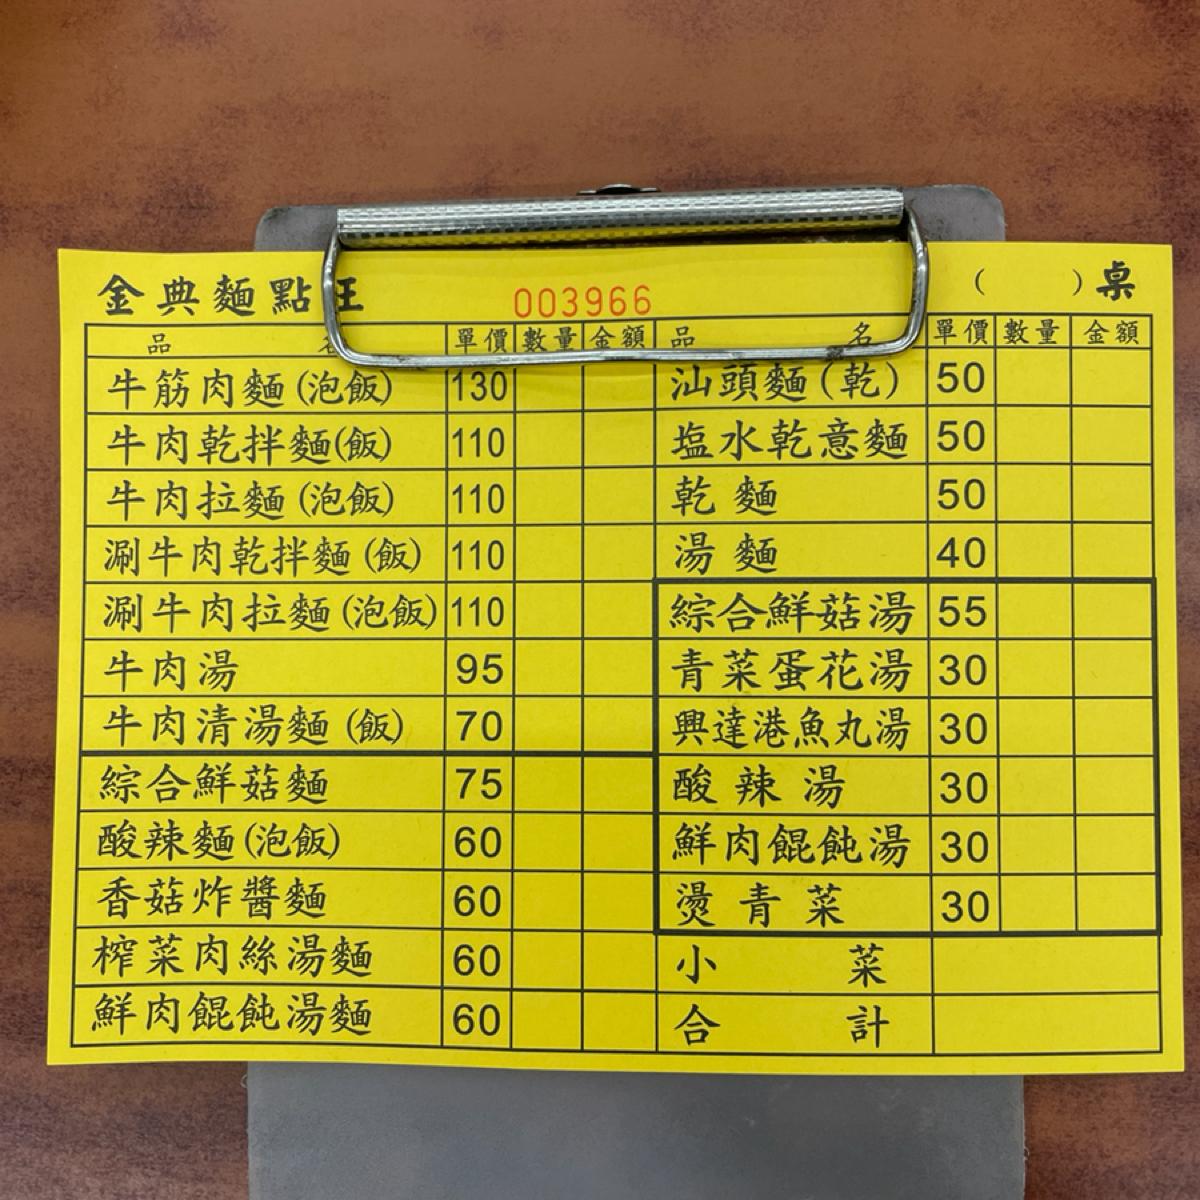 金典麵點王
003966
( )桌
品名 單價 數量 金額 品名 單價 數量 金額
牛筋肉麵(泡飯) 130 汕頭麵(乾) 50
牛肉乾拌麵(飯) 110 塩水乾意麵 50
牛肉拉麵(泡飯) 110 乾麵 50
涮牛肉乾拌麵(飯) 110 湯麵 40
涮牛肉拉麵(泡飯) 110 綜合鮮菇湯 55
牛肉湯 95 青菜蛋花湯 30
牛肉清湯麵(飯) 70 興達港魚丸湯 30
綜合鮮菇麵 75 酸辣湯 30
酸辣麵(泡飯) 60 鮮肉餛飩湯 30
香菇炸醬麵 60 燙青菜 30
榨菜肉絲湯麵 60 小菜
鮮肉餛飩湯麵 60 合計